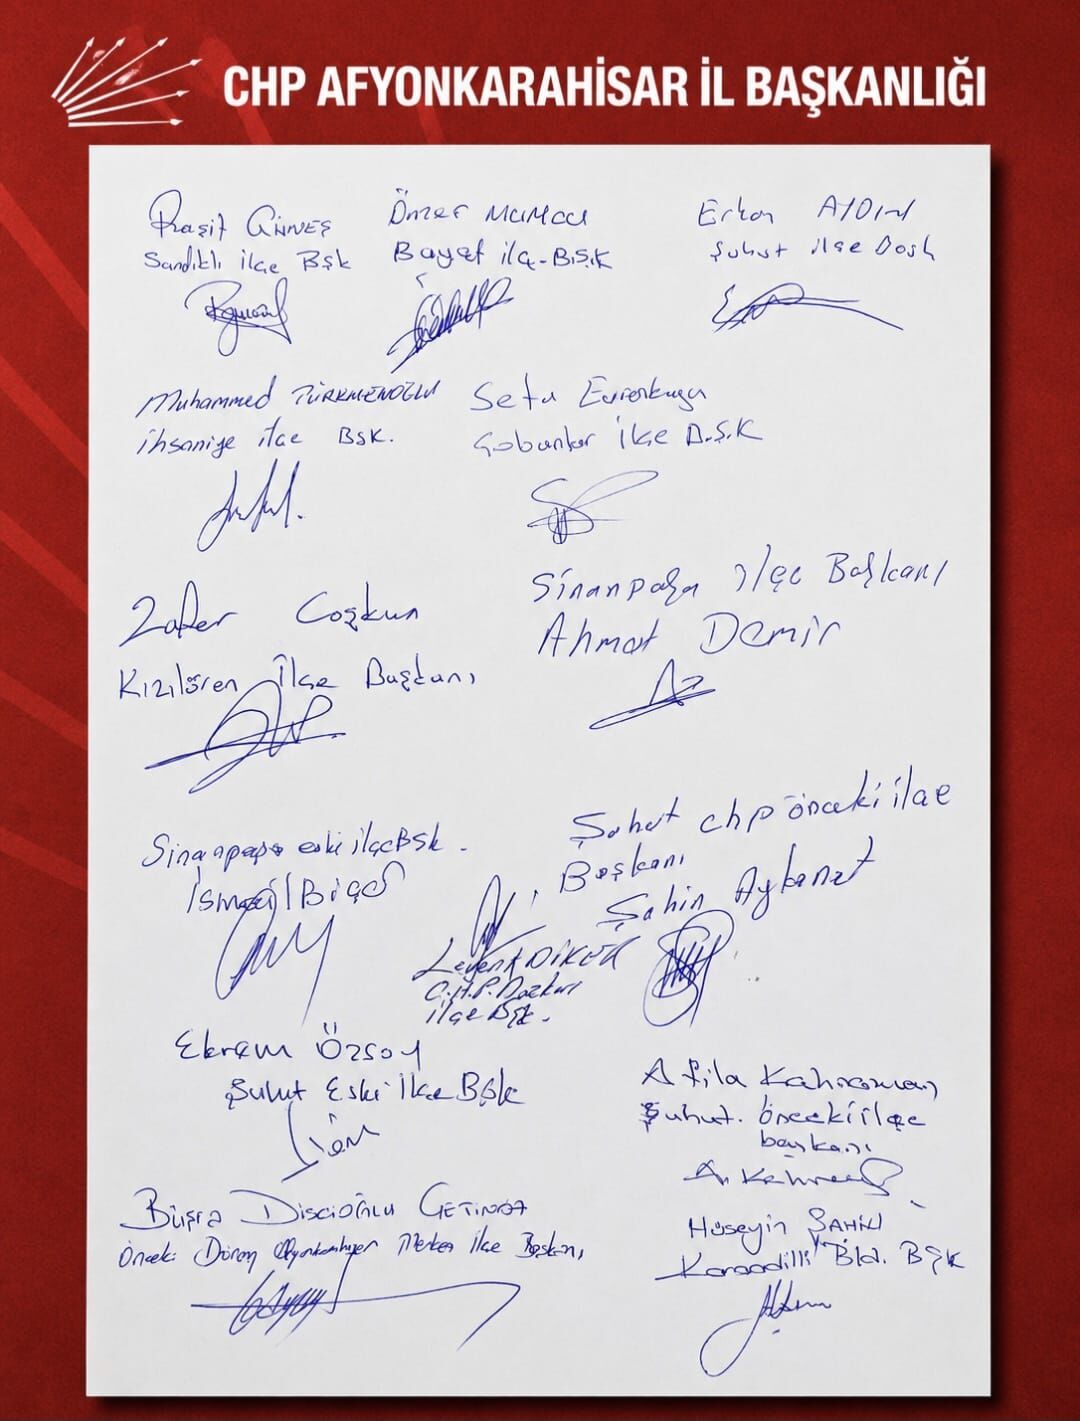 CHP AFYONKARAHİSAR İL BAŞKANLIĞI
Raşit GÜNEŞ
Sandıklı ilçe Bşk
Ömer MUMCU
Bayat ilç-BŞK
Erkan AYDIN
Şuhut ilçe Bşk
Muhammed TÜRKMENOĞLU
ihsaniye ilçe BŞK.
Sefa
Çobanlar İlçe B.Ş.K
Zafer Coşkun
Kızılören İlçe Başkanı
Sinanpaşa ilçe Başkanı
Ahmet Demir
Sinanpaşa eski ilçe Bşk.
İsmail
Şuhut chp önceki ilçe
Başkanı
Şahin Aykanat
Levent DİKER
C.H.P. Bazkırı
ilçe Bşk.
Ekrem Özsoy
Şuhut Eski İlçe Bşk
Atila Kahraman
Şuhut. önceki ilçe
başkanı
Büşra Dişcioğlu ÇETİNTAŞ
Önceki Dönem Afyonkarahisar Merkez İlçe Başkanı
Hüseyin ŞAHİN
Karaadilli Bld. Bşk